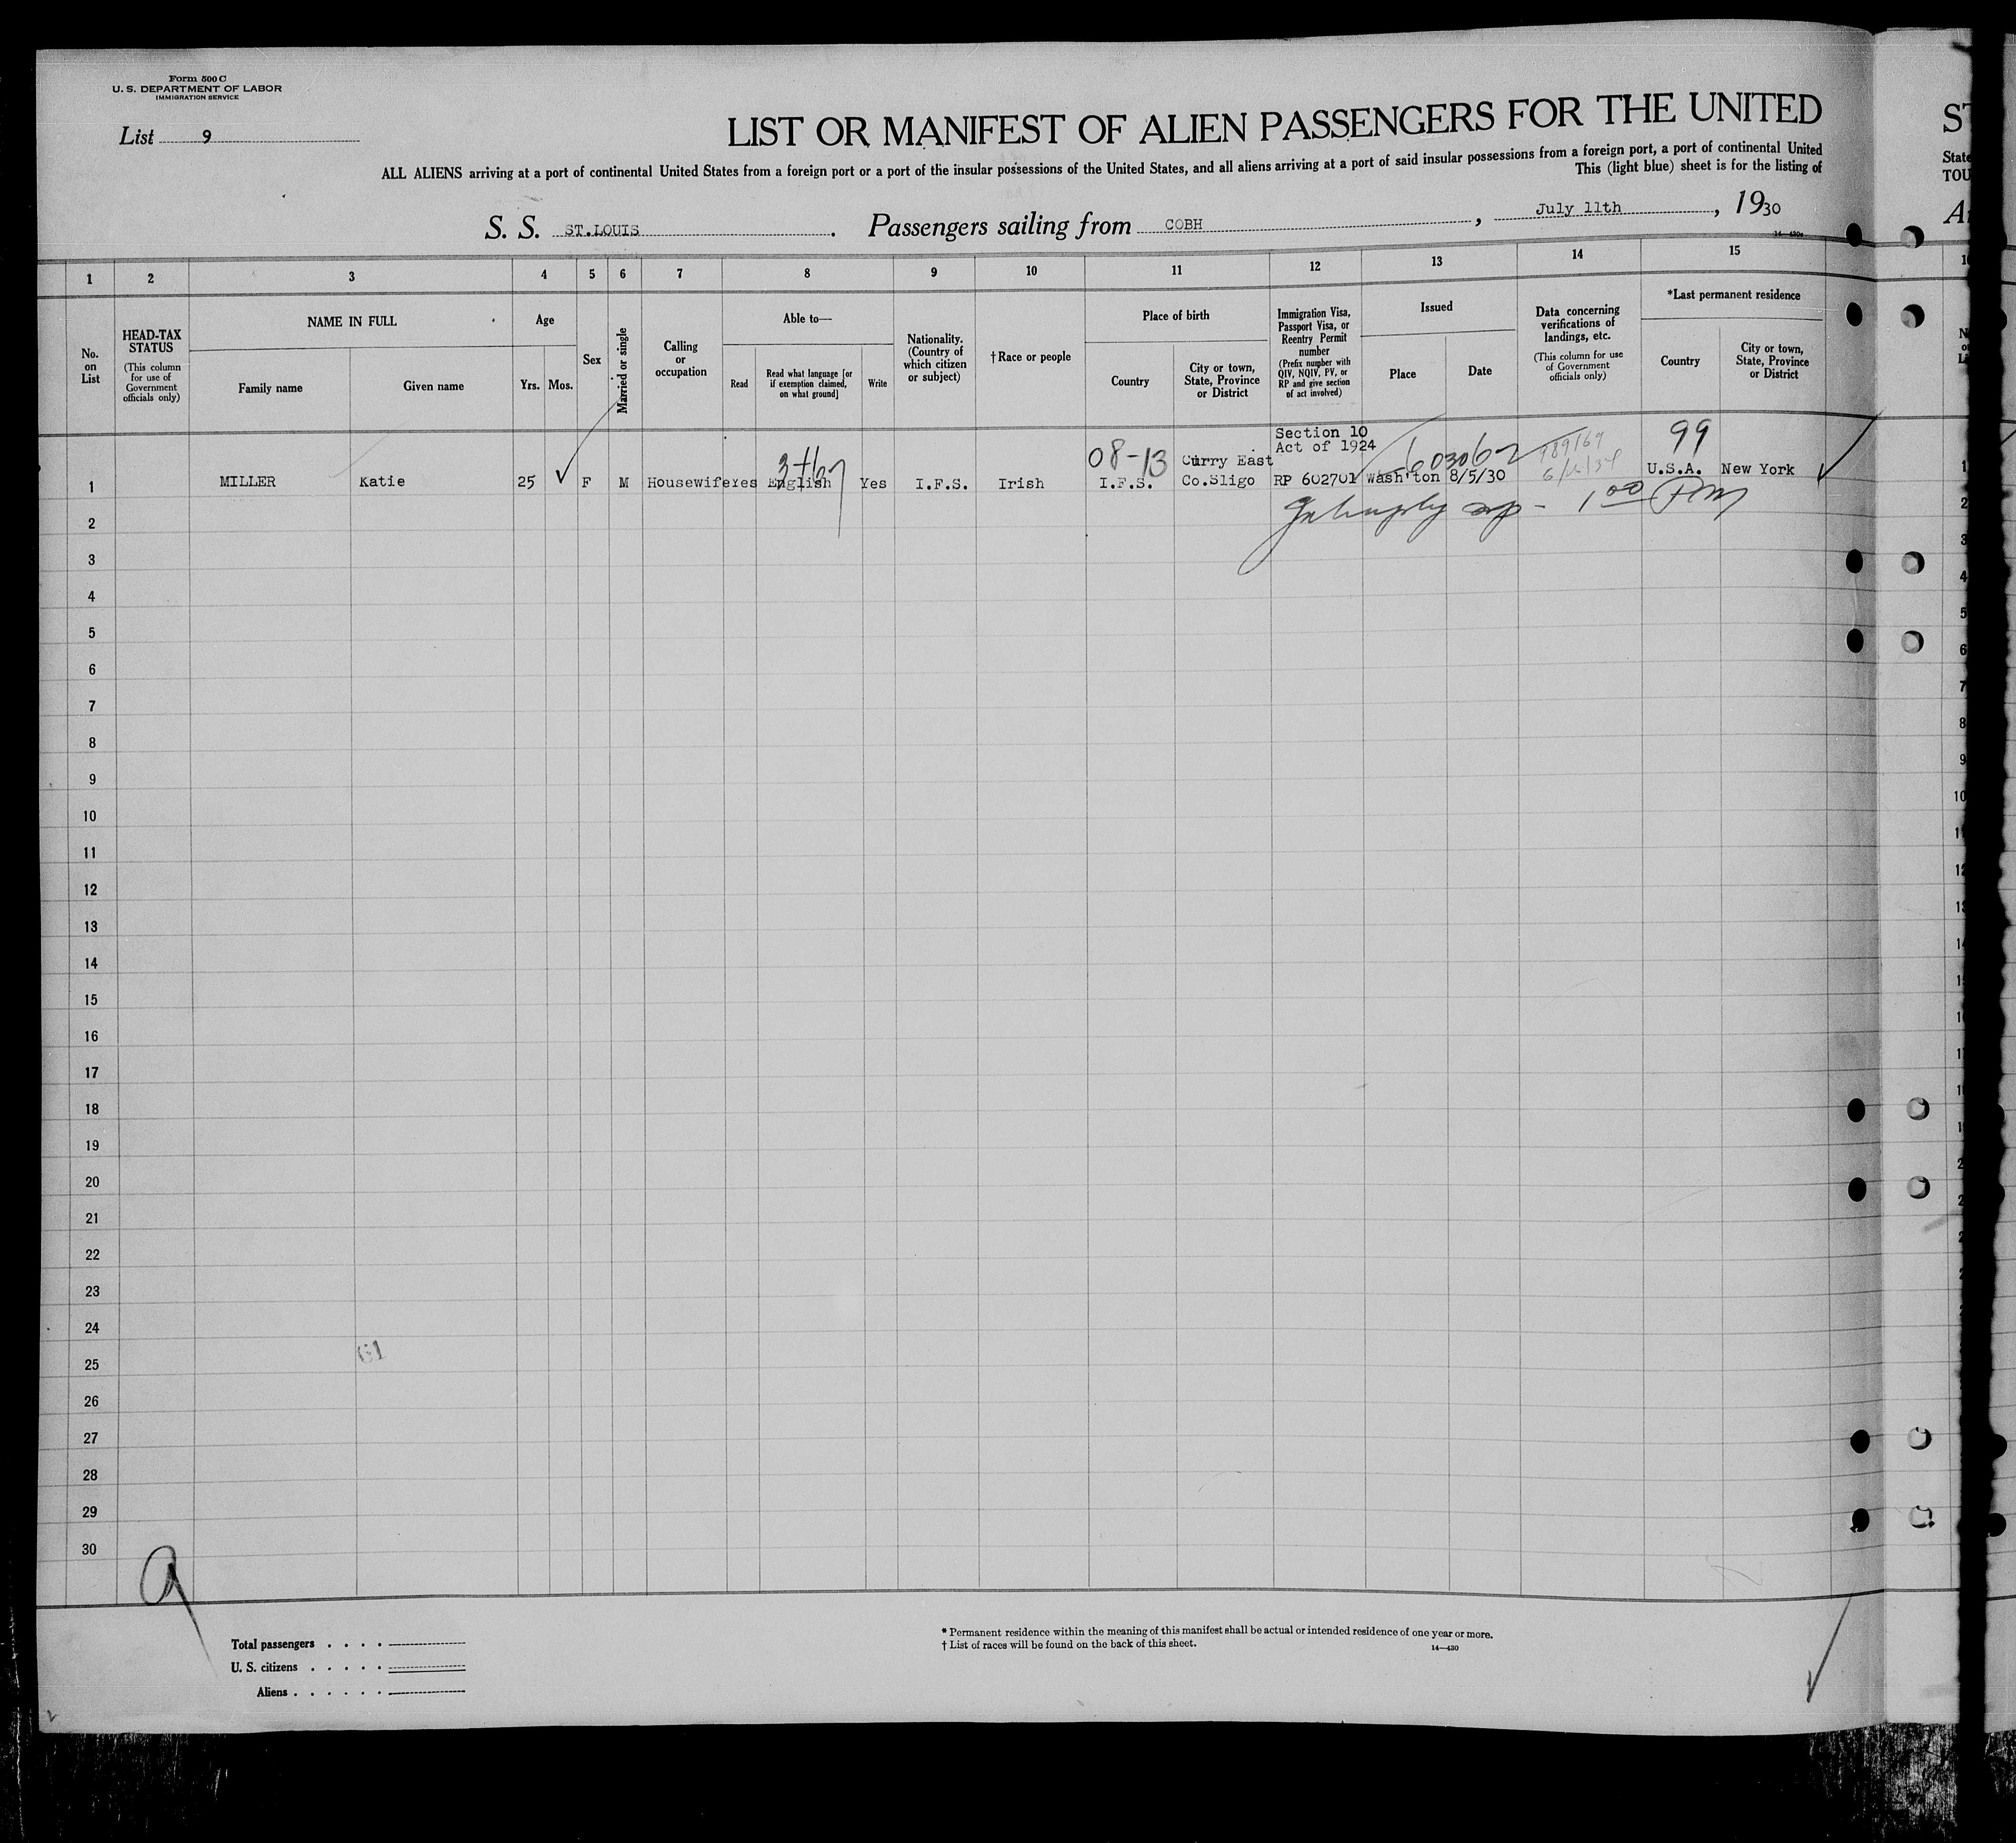 Form 500 C
U. S. DEPARTMENT OF LABOR
IMMIGRATION SERVICE
List 9
LIST OR MANIFEST OF ALIEN PASSENGERS FOR THE UNITED
ALL ALIENS arriving at a port of continental United States from a foreign port or a port of the insular possessions of the United States, and all aliens arriving at a port of said insular possessions from a foreign port, a port of continental United
This (light blue) sheet is for the listing of
S. S. ST.LOUIS. Passengers sailing from COBH, July 11th, 1930
1 2 3 4 5 6 7 8 9 10 11 12 13 14 15
No. on List
HEAD-TAX STATUS
(This column for use of Government officials only)
NAME IN FULL
Family name
Given name
Age
Yrs. Mos.
Sex
Married or single
Calling or occupation
Able to—
Read
Read what language [or if exemption claimed, on what ground]
Write
Nationality. (Country of which citizen or subject)
†Race or people
Place of birth
Country
City or town, State, Province or District
Immigration Visa, Passport Visa, or Reentry Permit number
(Prefix number with QIV, NQIV, PV, or RP and give section of act involved)
Issued
Place
Date
Data concerning verifications of landings, etc.
(This column for use of Government officials only)
*Last permanent residence
Country
City or town, State, Province or District
Section 10
Act of 1924
08-13
99
Curry East
603062
1 MILLER Katie 25 F M Housewife Yes English Yes I.F.S. Irish I.F.S. Co.Sligo RP 602701 Wash'ton 8/5/30 U.S.A. New York
2
3
4
5
6
7
8
9
10
11
12
13
14
15
16
17
18
19
20
21
22
23
24
25
26
27
28
29
30
61
Total passengers . . . .
U. S. citizens . . . . .
Aliens . . . . . .
* Permanent residence within the meaning of this manifest shall be actual or intended residence of one year or more.
† List of races will be found on the back of this sheet.
14—430